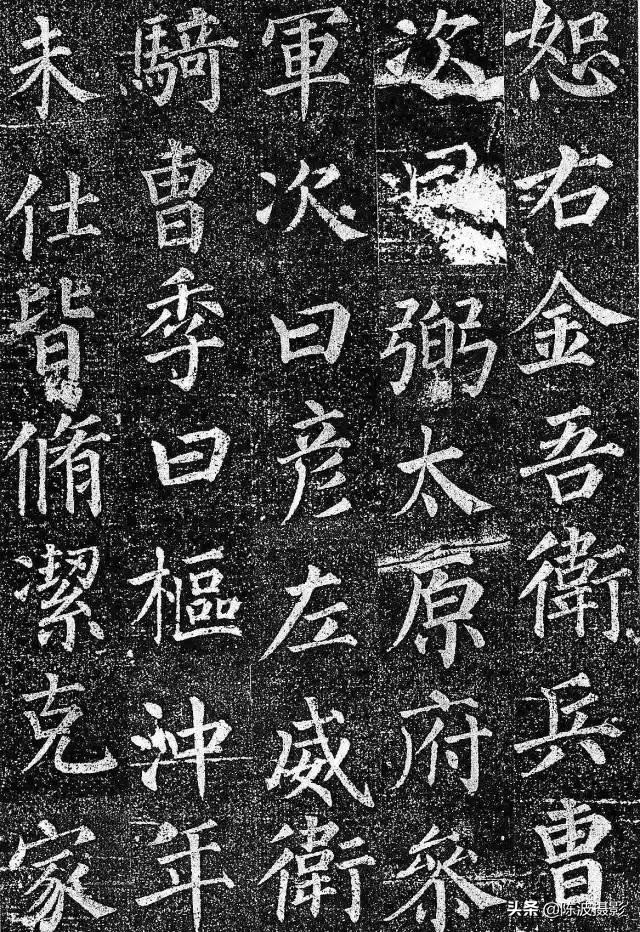 恕右金吾衛兵曹
次曰弼太原府叅
軍次曰彦左威衛
騎曹季曰樞沖年
未仕皆脩潔克家
头条 @陈波摄影